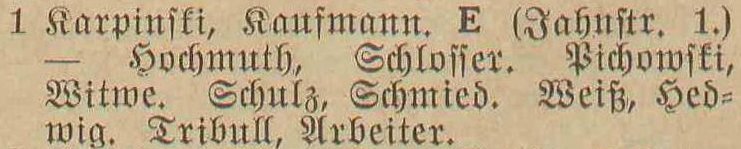 1 Karpinſki, Kaufmann. E (Jahnſtr. 1.)
— Hochmuth, Schloſſer. Pichowſki,
Witwe. Schulz, Schmied. Weiß, Hed⸗
wig. Tribull, Arbeiter.